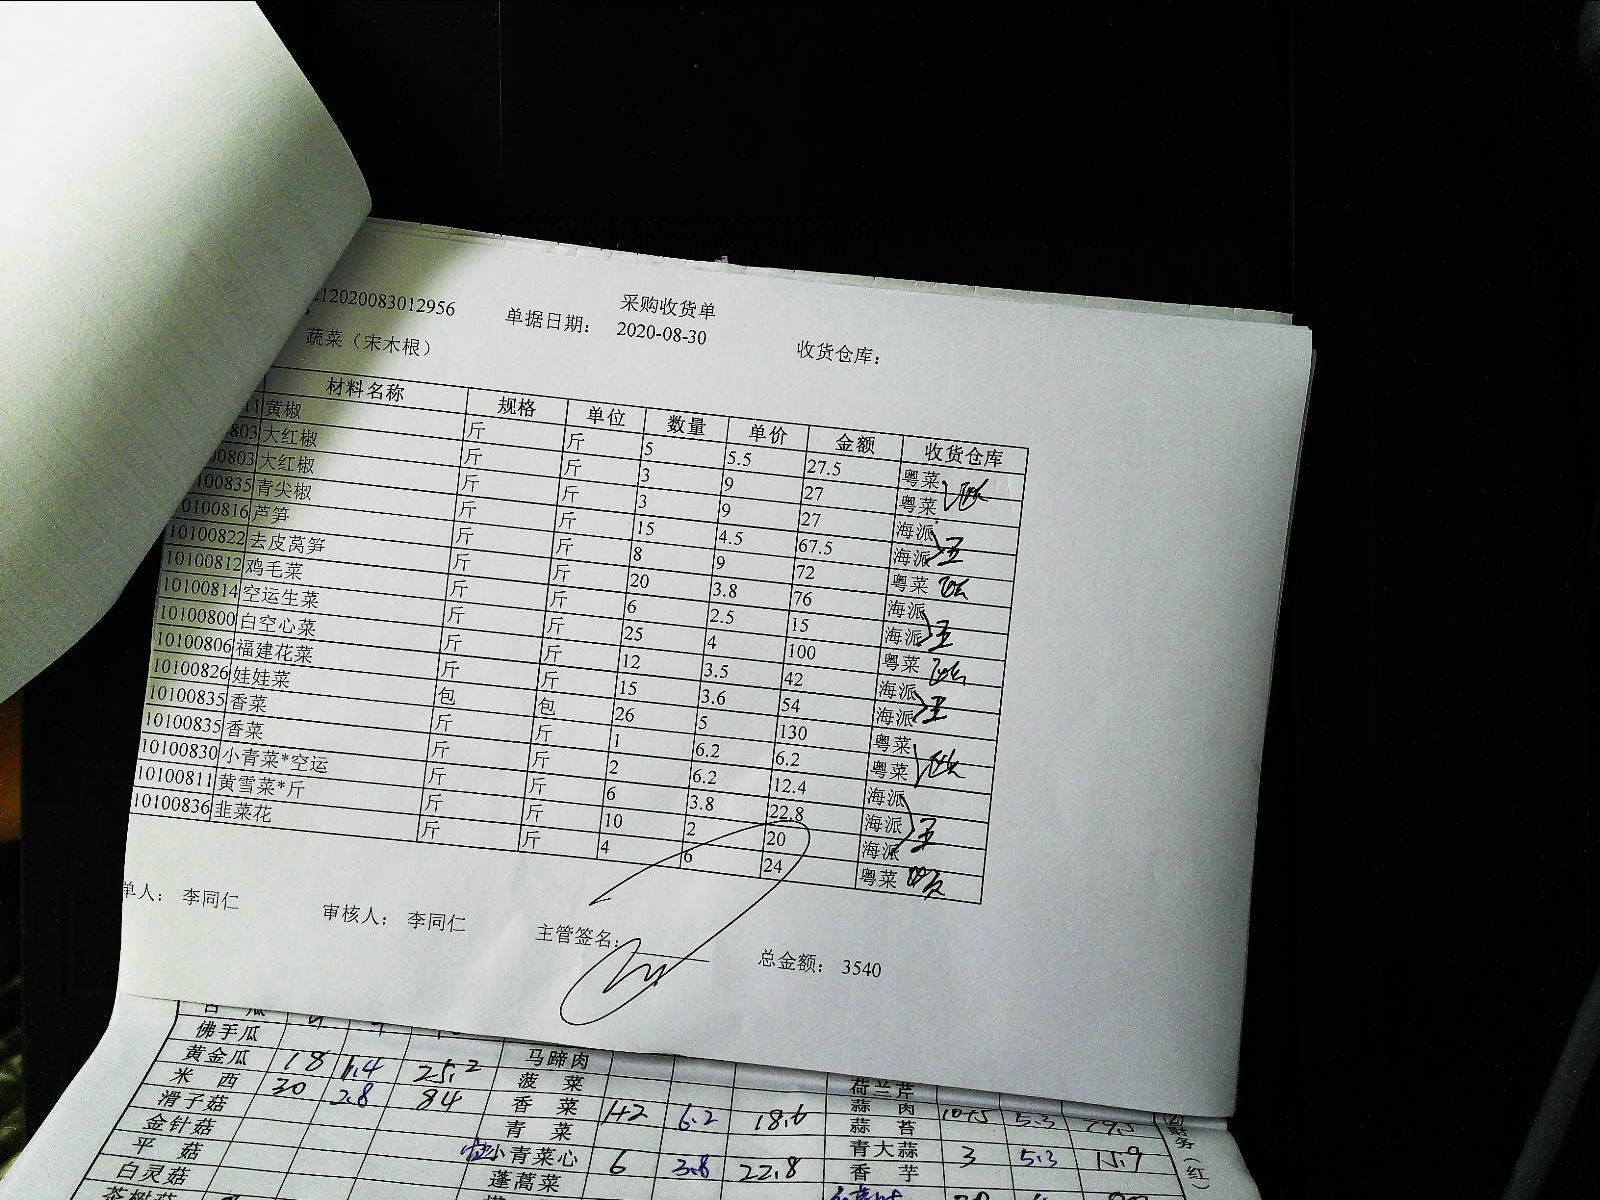 采购收货单
212020083012956 单据日期： 2020-08-30 收货仓库：
蔬菜（宋木根）
材料名称 规格 单位 数量 单价 金额 收货仓库
11 黄椒 斤 斤 5 5.5 27.5 粤菜
803 大红椒 斤 斤 3 9 27 粤菜
0803 大红椒 斤 斤 3 9 27 海派
100835 青尖椒 斤 斤 15 4.5 67.5 海派 王
0100816 芦笋 斤 斤 8 9 72 粤菜
10100822 去皮莴笋 斤 斤 20 3.8 76 海派
10100812 鸡毛菜 斤 斤 6 2.5 15 海派 王
10100814 空运生菜 斤 斤 25 4 100 粤菜
10100800 白空心菜 斤 斤 12 3.5 42 海派
10100806 福建花菜 斤 斤 15 3.6 54 海派 王
10100826 娃娃菜 包 包 26 5 130 粤菜
10100835 香菜 斤 斤 1 6.2 6.2 粤菜
10100835 香菜 斤 斤 2 6.2 12.4 海派
10100830 小青菜*空运 斤 斤 6 3.8 22.8 海派 王
10100811 黄雪菜*斤 斤 斤 10 2 20 海派
10100836 韭菜花 斤 斤 4 6 24 粤菜
单人： 李同仁 审核人： 李同仁 主管签名： 总金额： 3540
佛手瓜
黄金瓜 18 1.4 25.2 马蹄肉
米 西 30 2.8 84 菠 菜 荷兰芹
滑子菇 香 菜 1+2 6.2 18.6 蒜 肉
金针菇 青 菜 蒜 苔
平 菇 小青菜心 6 3.8 22.8 青大蒜 3 5.3 15.9
白灵菇 蓬蒿菜 香 芋
茶树菇
财务（红）